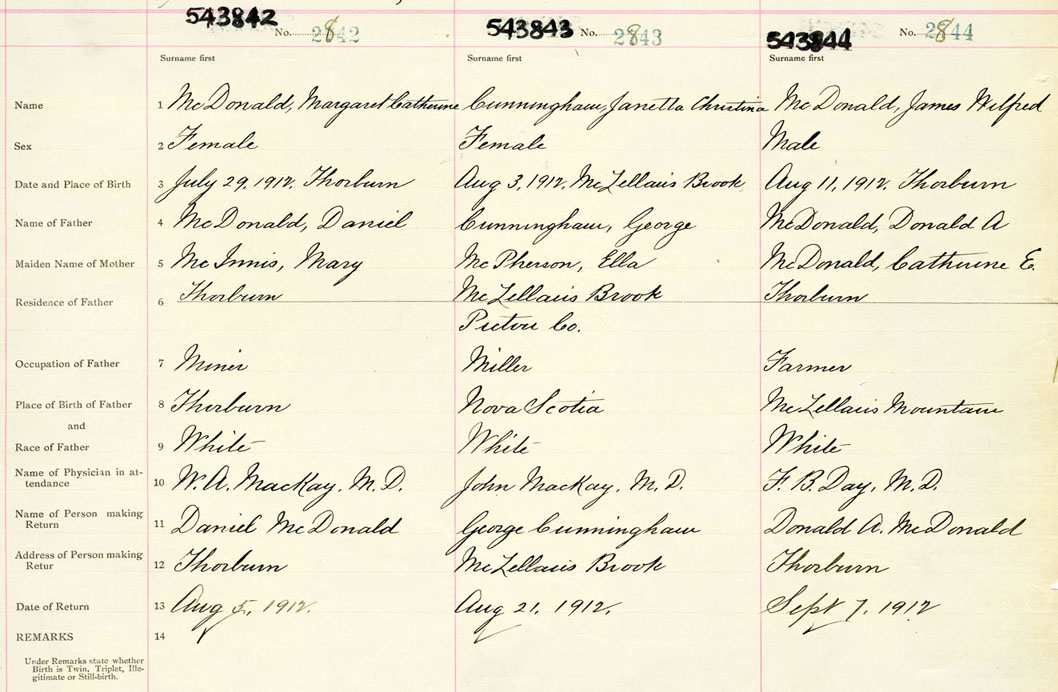 543842 No. 2842 543843 No. 2843 543844 No. 2844
Surname first Surname first Surname first
Name 1 McDonald, Margaret Catherine Cunningham, Janetta Christina McDonald, James Wilfred
Sex 2 Female Female Male
Date and Place of Birth 3 July 29, 1912. Thorburn Aug 3, 1912. McLellans Brook Aug 11, 1912. Thorburn
Name of Father 4 McDonald, Daniel Cunningham, George McDonald, Donald A
Maiden Name of Mother 5 McInnis, Mary McPherson, Ella McDonald, Catherine E.
Residence of Father 6 Thorburn McLellans Brook Thorburn
Pictou Co.
Occupation of Father 7 Miner Miller Farmer
Place of Birth of Father 8 Thorburn Nova Scotia McLellans Mountain
and
Race of Father 9 White White White
Name of Physician in at-
tendance 10 W. A. MacKay. M. D. John MacKay. M. D. F. B. Day, M.D.
Name of Person making
Return 11 Daniel McDonald George Cunningham Donald A. McDonald
Address of Person making
Retur 12 Thorburn McLellans Brook Thorburn
Date of Return 13 Aug 5, 1912. Aug 21, 1912. Sept 7, 1912
REMARKS 14
Under Remarks state whether
Birth is Twin, Triplet, Ille-
gitimate or Still-birth.